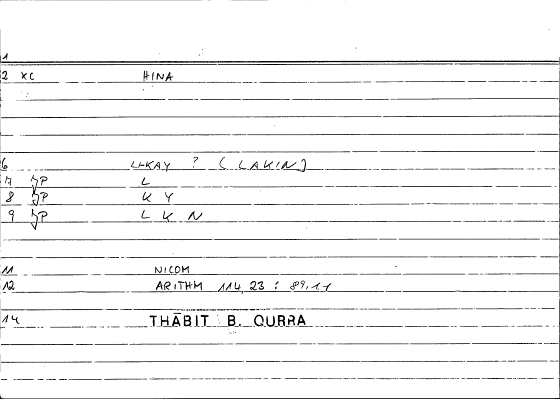 1
2 XC HINA
6 LI-KAY ? ( LAKIN )
7 JP L
8 JP K Y
9 JP L K N
11 NICOM
12 ARITHM 114,23 : 89,11
14 THĀBIT B. QURRA